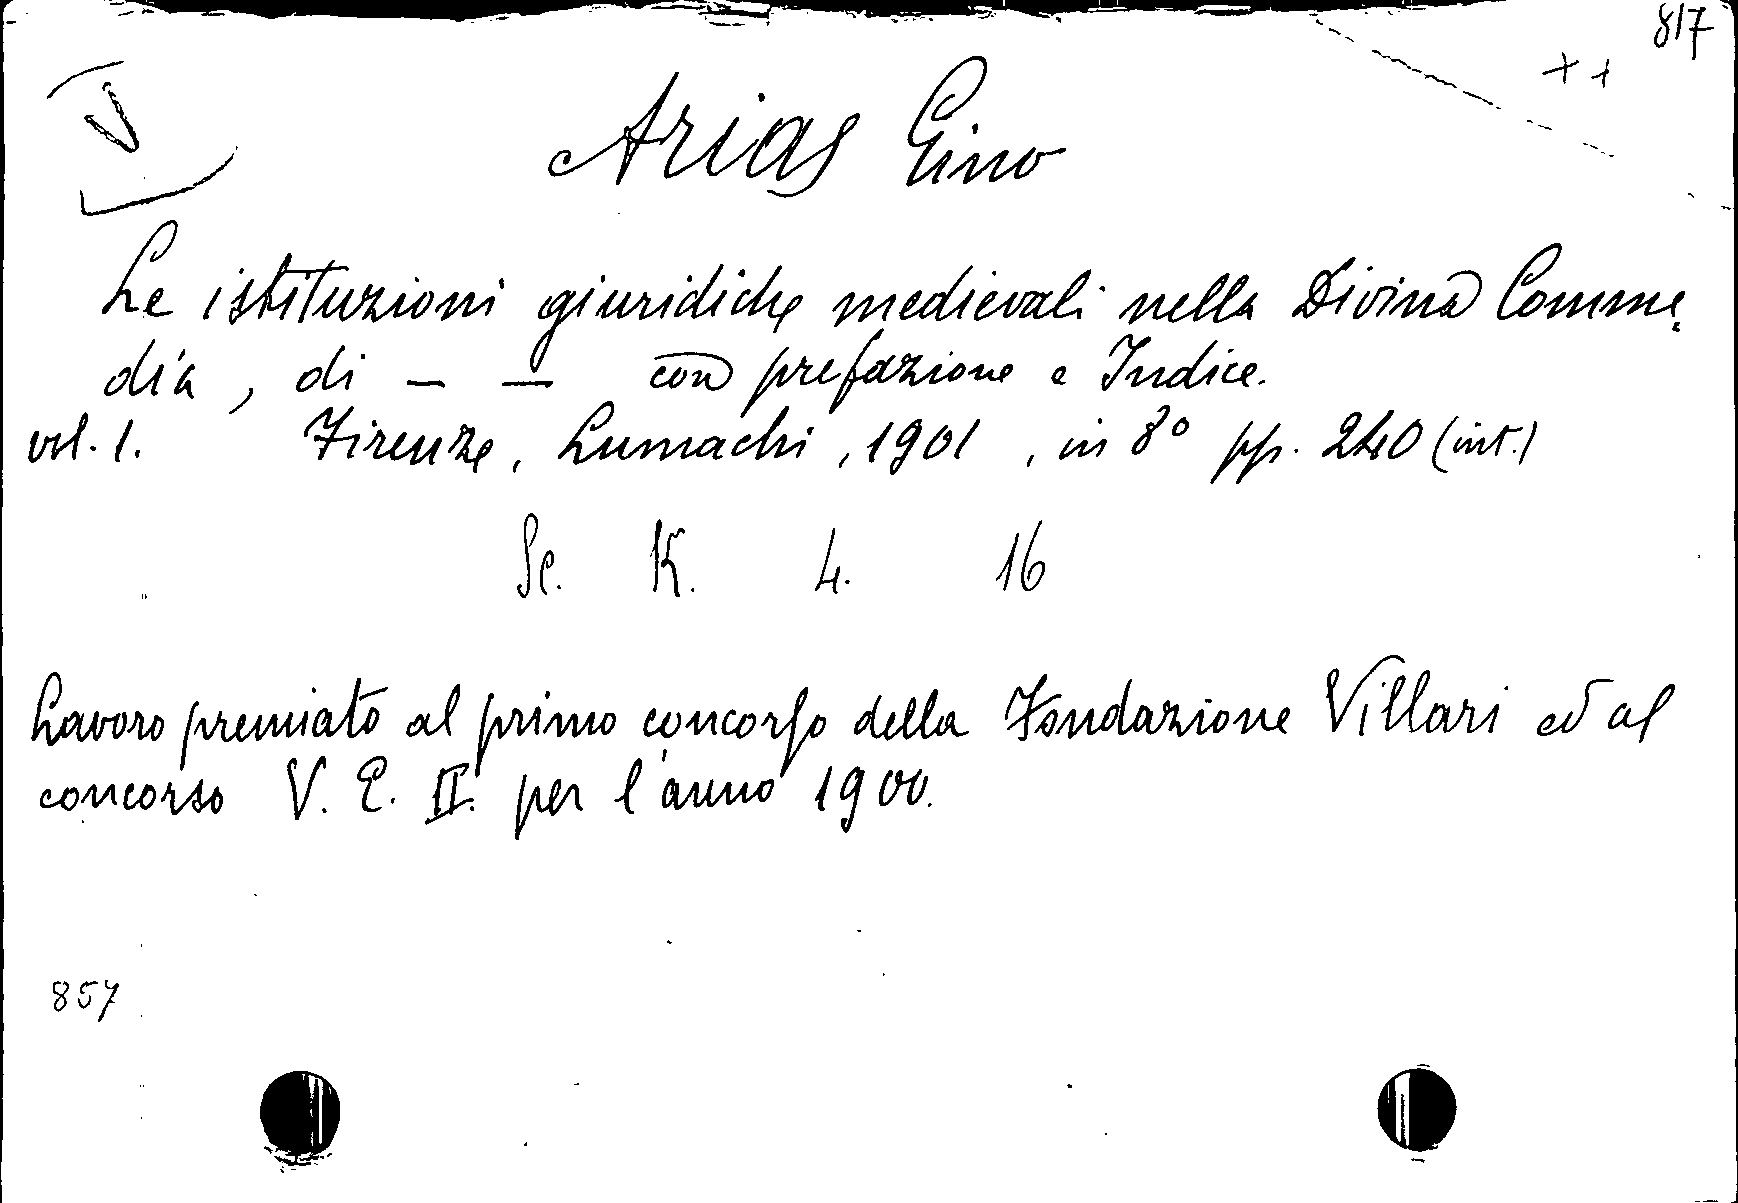 817
V
++
Arias Gino
Le istituzioni giuridiche medievali nella Divina Comme
dia, di — — con prefazione e Indice.
vol. 1. Firenze, Lumachi, 1901, in 8° pp. 240 (int.)
Sc. K. 4. 16
Lavoro premiato al primo concorso della Fondazione Villari ed al
concorso V. E. II. per l'anno 1900.
857